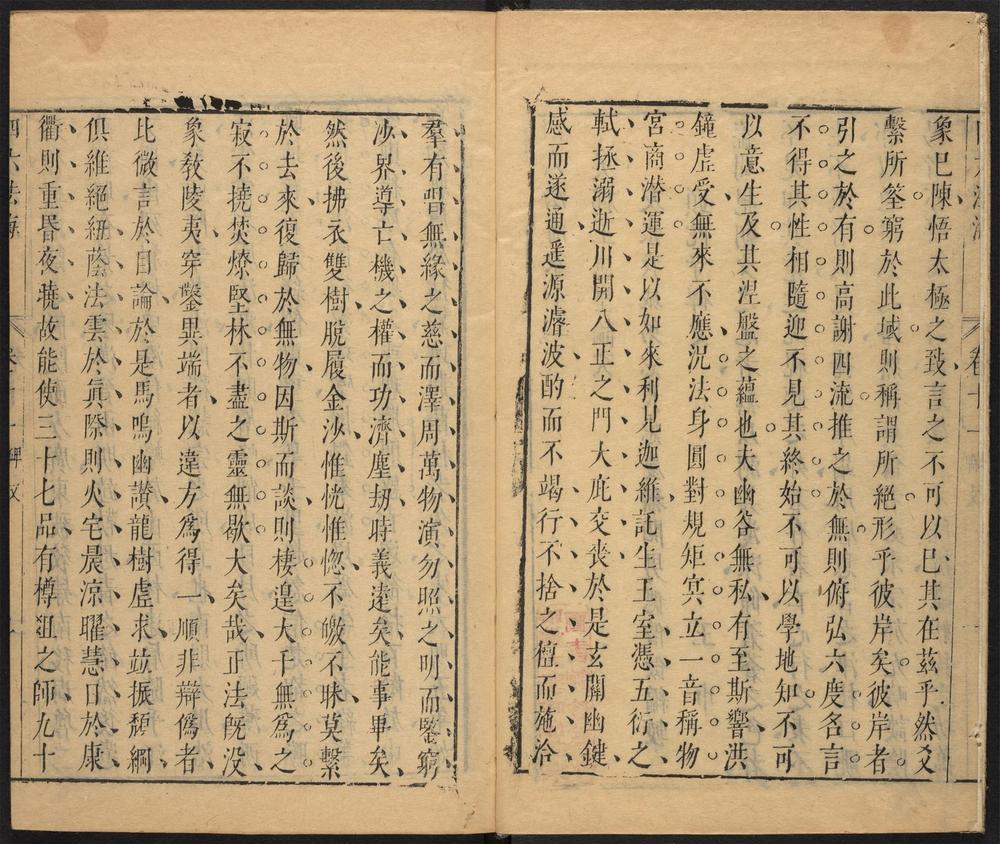 象已陳悟太極之致言之不可以已其在茲乎然爻
繫所筌窮於此域則稱謂所絕形乎彼岸矣彼岸者
引之於有則高謝四流推之於無則俯弘六度名言
不得其性相隨迎不見其終始不可以學地知不可
以意生及其涅盤之蘊也夫幽谷無私有至斯響洪
鐘虛受無來不應況法身圓對規矩冥立一音稱物
宮商潛運是以如來利見迦維託生王室憑五衍之
軾拯溺逝川開八正之門大庇交喪於是玄關幽鍵
感而遂通遥源濬波酌而不竭行不捨之檀而施洽
羣有唱無緣之慈而澤周萬物演勿照之明而鑒窮
沙界導亡機之權而功濟塵劫時義遠矣能事畢矣
然後拂衣雙樹脫屨金沙惟恍惟惚不皦不昧莫繫
於去來復歸於無物因斯而談則棲遑大千無爲之
寂不撓焚燎堅林不盡之靈無歇大矣哉正法既没
象敎陵夷穿鑿異端者以違方爲得一順非辯僞者
比微言於目論於是馬鳴幽讃龍樹虛求竝振頹綱
俱維絕紐蔭法雲於眞際則火宅晨凉曜慧日於康
衢則重昏夜曉故能使三十七品有樽俎之師九十
四六法海